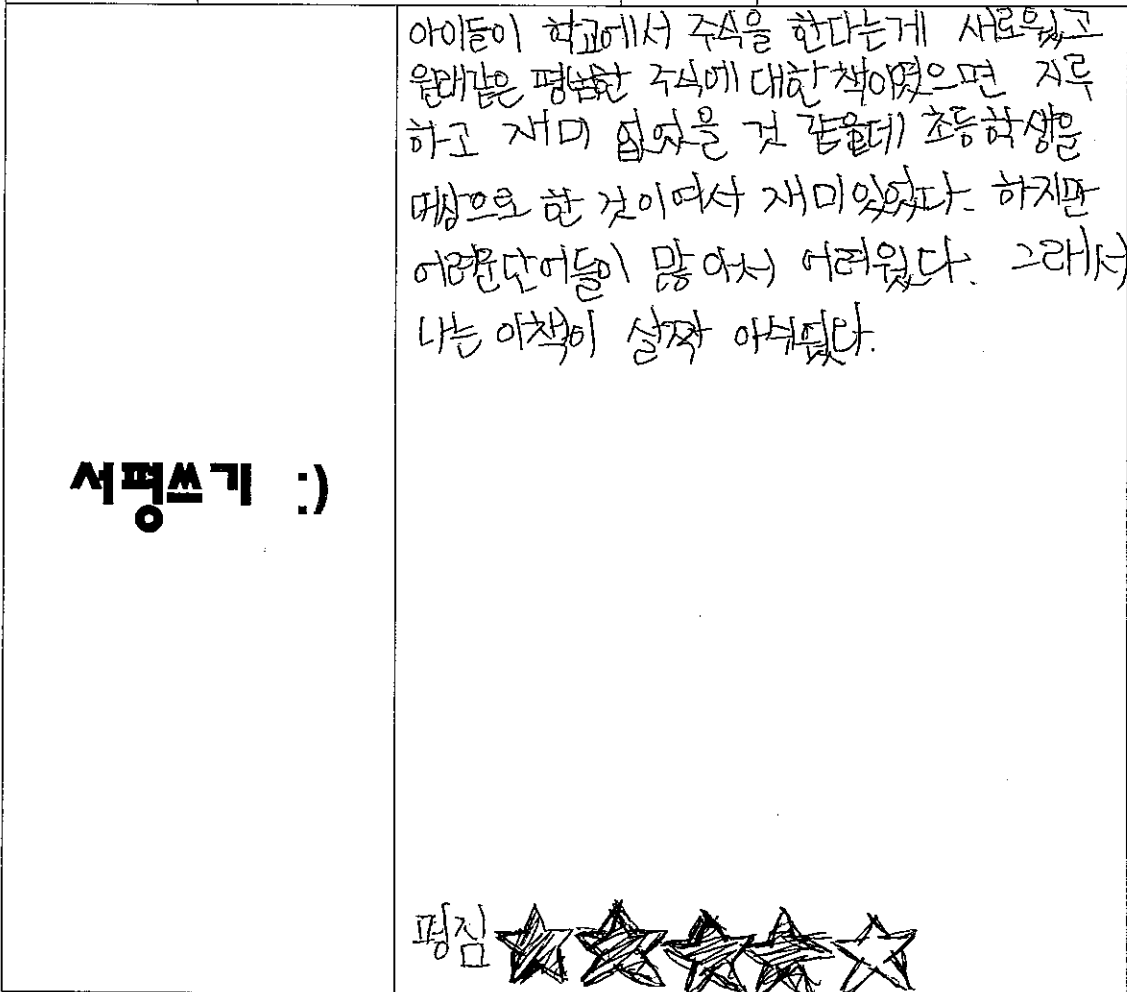 아이들이 학교에서 주식을 한다는게 새로웠고
원래같은 평범한 주식에 대한 책이였으면 지루
하고 재미 없었을 것 같은데 초등학생을
대상으로 한 것이여서 재미있었다. 하지만
어려운단어들이 많아서 어려웠다. 그래서
나는 이책이 살짝 아쉬웠다.
서평쓰기 :)
평점